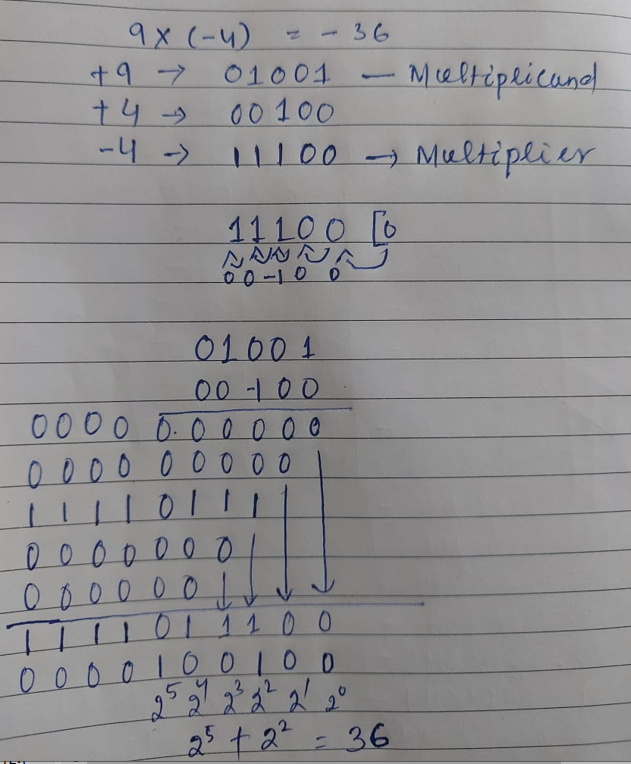 9 x (-4) = - 36
+9 → 01001 — Multiplicand
+4 → 00100
-4 → 11100 → Multiplier
11100 [0
0 0 -1 0 0
01001
00 -1 00
0000 0.00000
0000 00000
1111 0111
0000000
000000
1111011100
0000100100
2⁵ 2⁴ 2³ 2² 2¹ 2⁰
2⁵ + 2² = 36